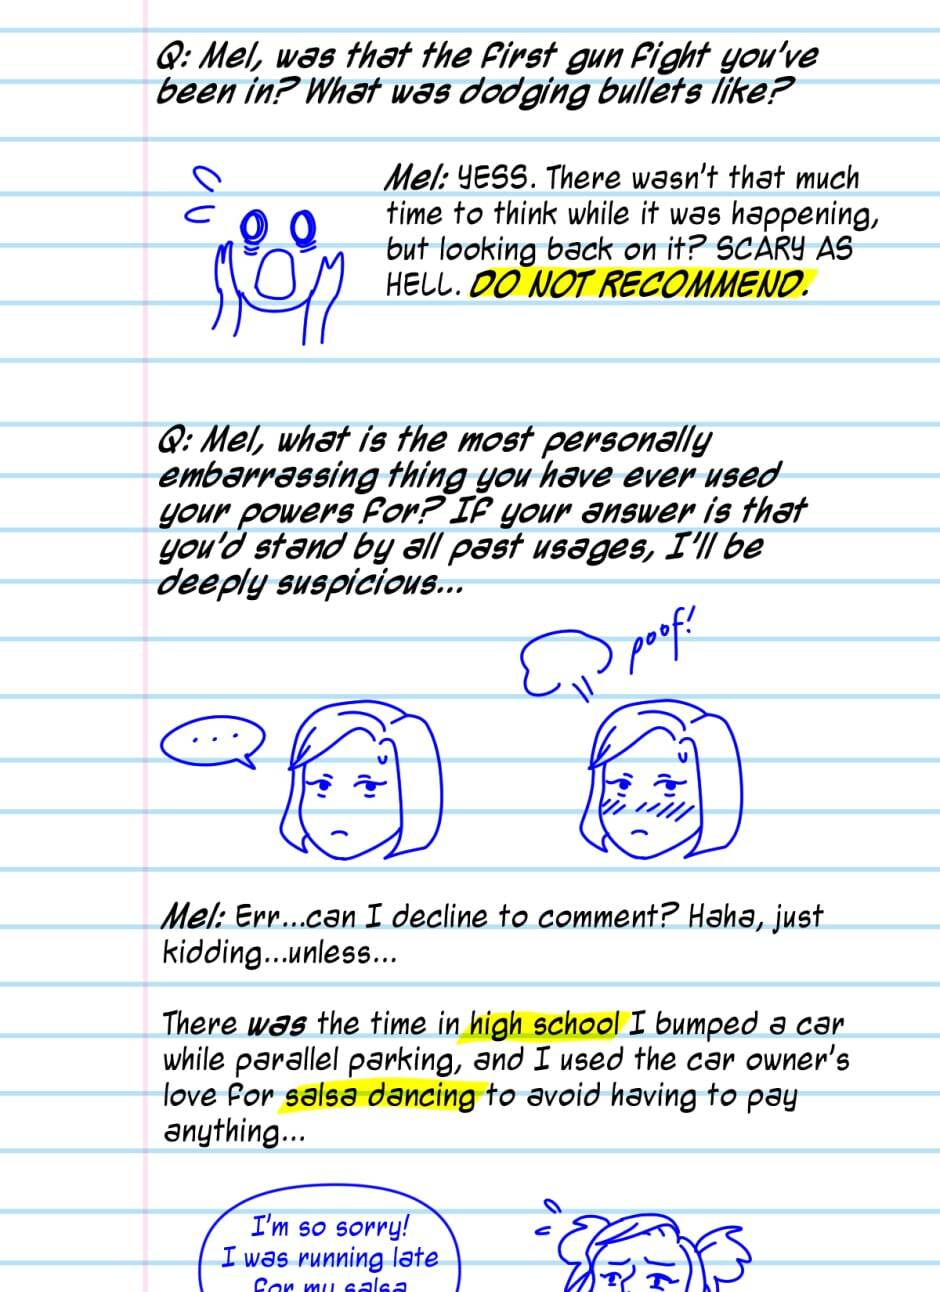 Q: Mel, was that the first gun fight you've
been in? What was dodging bullets like?
Mel: YESS. There wasn't that much
time to think while it was happening,
but looking back on it? SCARY AS
HELL. DO NOT RECOMMEND.
Q: Mel, what is the most personally
embarrassing thing you have ever used
your powers for? If your answer is that
you'd stand by all past usages, I'll be
deeply suspicious...
poof!
...
Mel: Err...can I decline to comment? Haha, just
kidding...unless...
There was the time in high school I bumped a car
while parallel parking, and I used the car owner's
love for salsa dancing to avoid having to pay
anything...
I'm so sorry!
I was running late
for my salsa